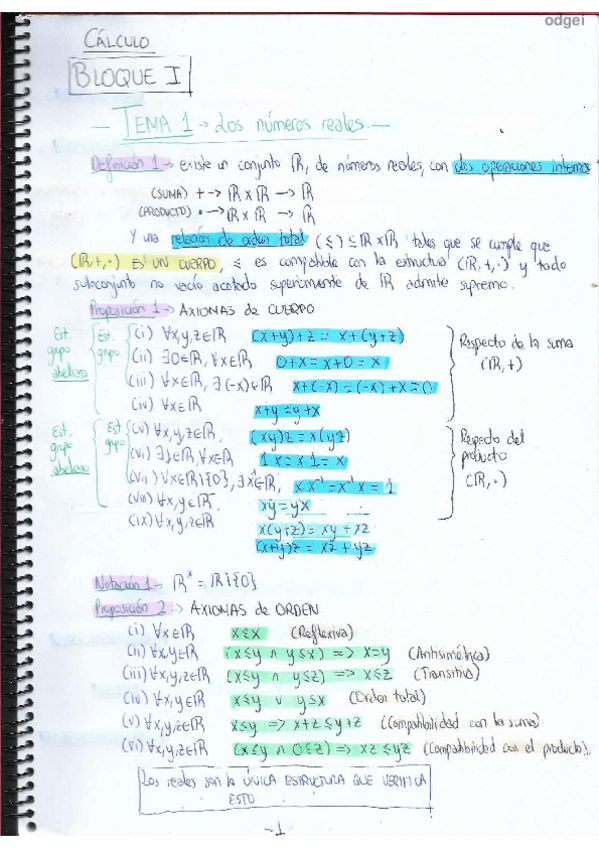 odgei
CÁLCULO
BLOQUE I
— TEMA 1 → Los números reales. —
Definición 1 → existe un conjunto ℝ, de números reales, con dos operaciones internas
(SUMA) + → ℝ x ℝ → ℝ
(PRODUCTO) • → ℝ x ℝ → ℝ
Y una relación de orden total (≤) ⊆ ℝ x ℝ tales que se cumple que
(ℝ, +, ·) ES UN CUERPO, ≤ es compatible con la estructura (ℝ, +, ·) y todo
subconjunto no vacío acotado superiormente de ℝ admite supremo.
Proposición 1 → AXIOMAS de CUERPO
Est. grupo abeliano
Est. grupo
(i) ∀x,y,z∈ℝ (x+y)+z = x+(y+z)
(ii) ∃0∈ℝ, ∀x∈ℝ 0+x = x+0 = x
(iii) ∀x∈ℝ, ∃(-x)∈ℝ x+(-x) = (-x)+x = 0
(iv) ∀x∈ℝ x+y = y+x
Respecto de la suma
(ℝ, +)
Est. grupo abeliano
Est. grupo
(v) ∀x,y,z∈ℝ, (xy)z = x(yz)
(vi) ∃1∈ℝ, ∀x∈ℝ 1·x = x·1 = x
(vii) ∀x∈ℝ\{0}, ∃x⁻¹∈ℝ, x x⁻¹ = x⁻¹x = 1
(viii) ∀x,y∈ℝ xy = yx
(ix) ∀x,y,z∈ℝ x(y+z) = xy + xz
(x+y)z = xz + yz
Respecto del
producto
(ℝ, ·)
Notación 1 → ℝ* = ℝ\{0}
Proposición 2 → AXIOMAS de ORDEN
(i) ∀x∈ℝ x≤x (Reflexiva)
(ii) ∀x,y∈ℝ (x≤y ∧ y≤x) => x=y (Antisimétrica)
(iii) ∀x,y,z∈ℝ (x≤y ∧ y≤z) => x≤z (Transitiva)
(iv) ∀x,y∈ℝ x≤y ∨ y≤x (Orden total)
(v) ∀x,y,z∈ℝ x≤y => x+z ≤ y+z (Compatibilidad con la suma).
(vi) ∀x,y,z∈ℝ (x≤y ∧ 0≤z) => xz ≤ yz (Compatibilidad con el producto).
Los reales son la ÚNICA ESTRUCTURA QUE VERIFICA
ESTO
-1